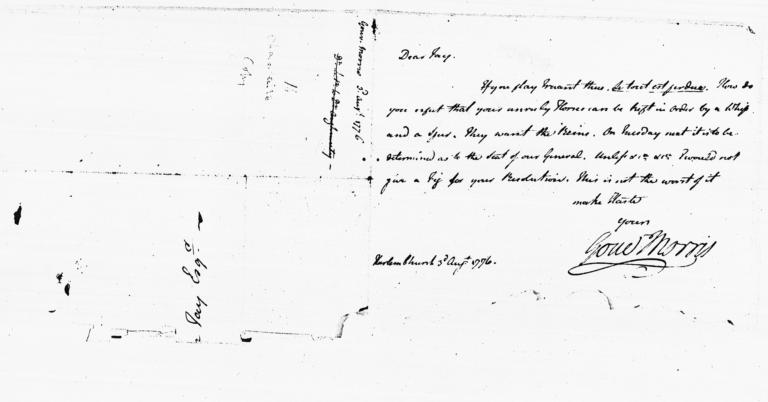 Dear Jay.
If you play truant thus. le tout est perdue. How do
you expect that your unruly Horses can be kept in order by a Whip
and a Spur. They want the Reins. On Tuesday next it is to be
determined as to the Seat of our General. Unless &c. &c. I would not
give a Fig for your Resolution. This is not the worst of it
make Haste
yours
Gouvr Morris
Harlem Church 3d Augt 1776.
Gouvr Morris 3d augt 1776
Jay Esqr